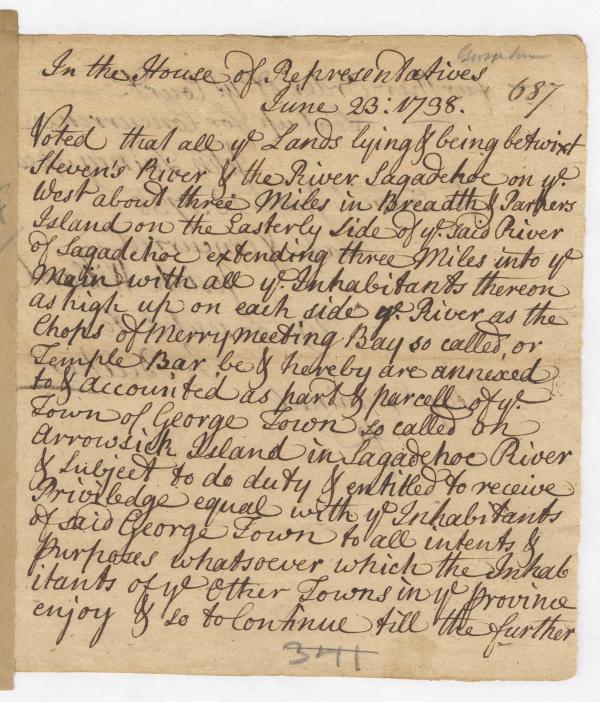 In the House of Representatives
June 23: 1738. 687
Voted that all yͤ Lands lying & being betwixt
Steven's River & the River Sagadehoc on yͤ.
West about three Miles in Breadth & Parkers
Island on the Easterly Side of yͤ. said River
of Sagadehoc extending three Miles into yͤ
Main with all yͤ. Inhabitants thereon
as high up on each side yͤ. River as the
Chops of Merrymeeting Bay so called, or
Temple Bar be & hereby are annexed
to & accounted as part & parcell of yͤ.
Town of George Town so called on
Arrowsick Island in Sagadehoc River
& Subject to do duty & entitled to receive
Priviledge equal with yͤ Inhabitants
of said George Town to all intents &
Purposes whatsoever which the Inhab
itants of yͤ Other Towns in yͤ Province
enjoy & so to Continue till the further
341